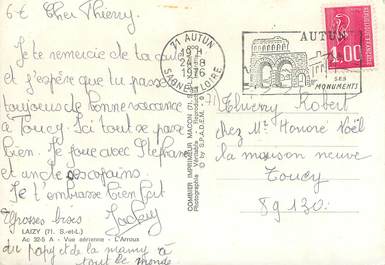 6€ Cher Thierry.
Je te remercie de ta
et j'espère que tu passe
toujours de bonnes vacances
à Toucy. Ici tout se passe
bien. Je joue avec Stéphane
et
Je t'embrasse bien fort
Grosses bises Jacky
LAIZY (71. S.-et-L.)
Ac 32-5 A - Vue aérienne - L'Arroux
du papy et de la mamy à
tout le monde
COMBIER IMPRIMEUR MACON (71)
Photographie Véritable - Reproduction
© by S.P.A.D.E.M.
71 AUTUN
19H
24-8
1976
SAONE ET LOIRE
AUTUN
SES
MONUMENTS
1,00
Thierry Robert
chez Mr Honoré Noël
la maison neuve
Toucy
89130.